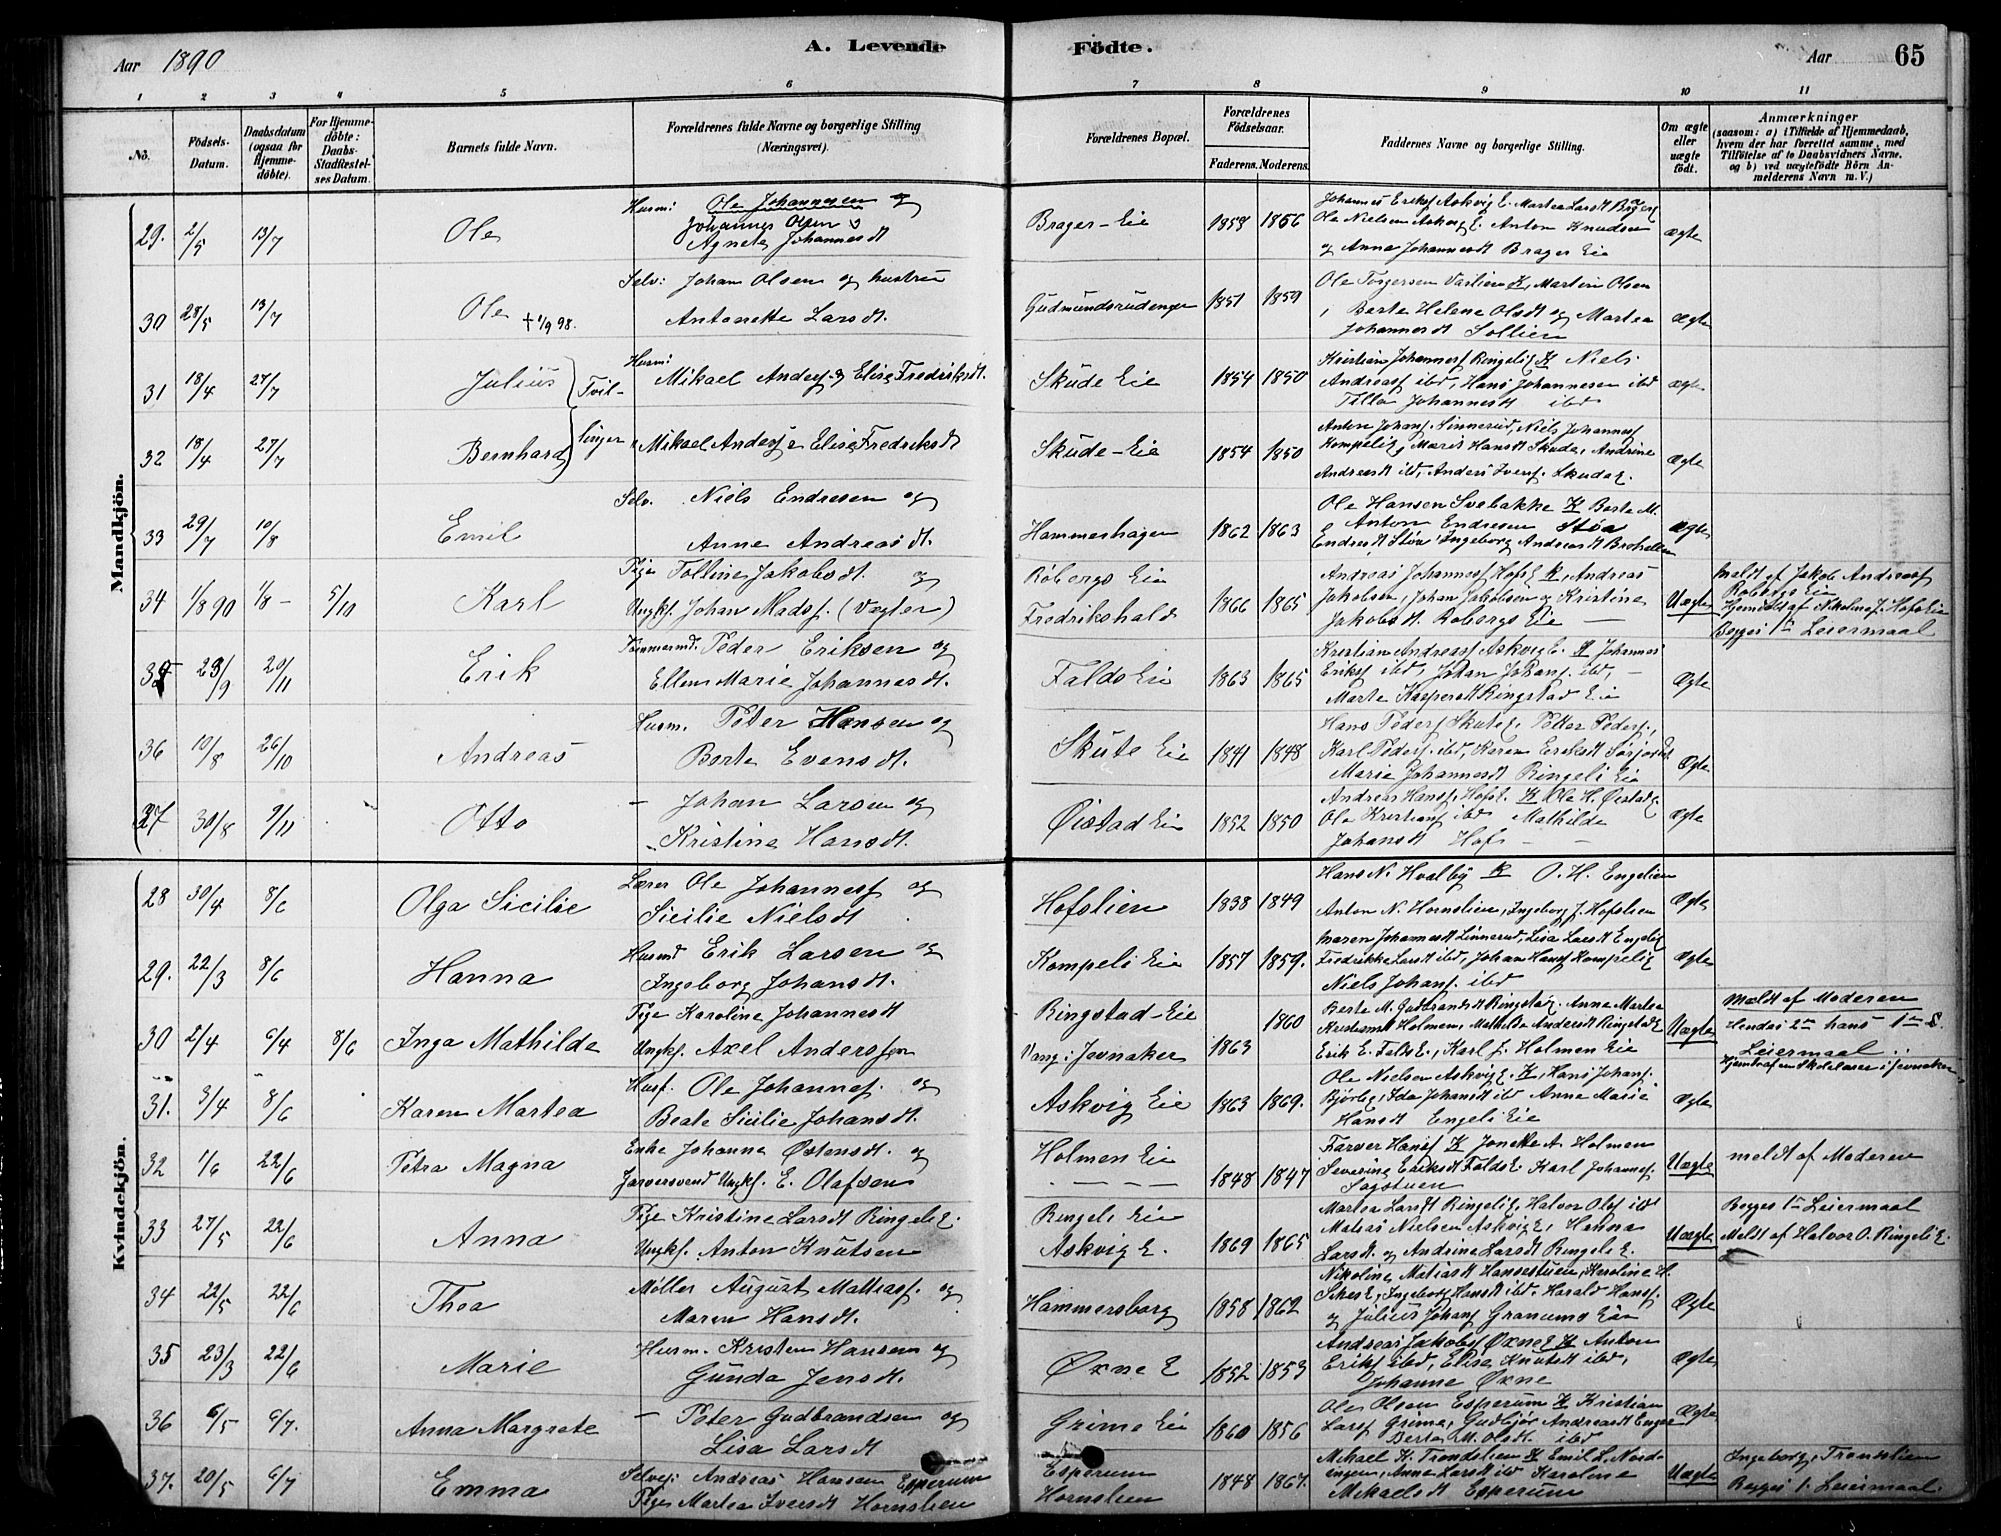 Aar 1890
A. Levende Födte.
Aar
65
1 2 3 4 5 6 7 8 9 10 11
No.
Födsels-Datum.
Daabsdatum (ogsaa for Hjemme-döbte).
For Hjemme-döbte: Daabs-Stadfæstel-ses Datum.
Barnets fulde Navn.
Forældrenes fulde Navne og borgerlige Stilling (Næringsvei).
Forældrenes Bopæl.
Forældrenes Födselsaar.
Faderens. Moderens.
Faddernes Navne og borgerlige Stilling.
Om ægte eller uægte födt.
Anmærkninger (saasom: a) i Tilfælde af Hjemmedaab, hvem der har forrettet samme, med Tilföielse af to Daabsvidners Navne, og b) ved uægtefödte Börn An-melderens Navn m. V.)
Mandkjön.
29. 2/5 13/7 Ole
Husm: Ole Johannesen og
Johannes Olsen
Agnete Johannesdt
Brager-Eie 1858 1856
Johannes Eriksf Askvig E. Martea Larsdt Brager
Ole Nielsen Askvig E. Anton Knudsen
og Anna Johannesdt Brager Eie
ægte
30 28/5 13/7 Ole † 1/9 98.
Selv: Johan Olsen og hustru
Antonette Larsdt.
Gudmundsrudengen 1851 1859
Ole Torgersen Vaslien K, Martin Olsen
Berte Helene Olsdt og Martea
Johannesdt Sollien
ægte
31 18/4 27/7 Julius Tvil-
Husm: Mikael Andersf. og Elise Fredriksdt.
Skude Eie 1854 1850
Kristian Johannesf Ringelig K Niels
Andreasf ibd, Hans Johannesen ibd
Johannesdt ibd
ægte
32 18/4 27/7 Bernhard linger
" Mikael Andersf e Elise Fredriksdt
Skude-Eie 1854 1850
Anton Johansf. Linnerud, Niels Johannesf
Kompelig, Maris Hansdt Skude, Andrine
Andreasdt ibd, Anders Iversf. Skude E.
ægte
33 29/7 10/8 Emil
Selv. Niels Endresen og
Anne Andreasdt.
Hammershagen 1862 1863
Ole Hansen Svebakke K Berte M.
Anton Endresen Støa
Endresdt Støa Ingeborg Andreasdt Brohallen
Ægte
34 1/8 90 1/8 - 5/10 Karl
Pige Tolline Jakobsdt. og
Ungkf. Johan Madsf. (Vægter)
Røbergs Eie
Fredrikshald 1866 1865
Andreas Johannesf Hofs E K, Andreas
Jakobsen, Johan Jakobsen og Kristine
Jakobsdt. Robergs Eie —
Uægte
meldt af Jakob Andreasf
Robergs Eie
Hjemdøbt af Nikoline J. Hofslien
Begges 1ste Leiermaal
35 23/9 20/11 Erik
Tømmermd. Peder Eriksen og
Ellen Marie Johannesdt.
Falds Eie 1863 1865
Kristian Andreasf Askvig E. K Johannes
Eriksf ibd, Johan Johansf. ibd, —
Marte Kaspersdt Ringstad Eie
Ægte
36 10/8 26/10 Andreas
Husm. Peter Hansen og
Berte Evensdt.
Skute Eie 1841 1848
Hans Pedersf Skute E. Petter Pedersf.,
Karl Pedersf. ibd, Karen
Marie Johannesdt Ringeli Eie
Ægte
37 30/8 9/11 Otto
— Johan Larsen og
Kristine Hansdt.
Øistad Eie 1852 1850
Andreas Hansf. Hofsl. K Ole H. Øistad E.
Ole Kristiansf ibd Mathilde
Johansdt Hofs - -
Ægte
Kvindekjön.
28 30/4 8/6 Olga Sicilie
Lærer Ole Johannesf og
Sicilie Nielsdt
Hofslien 1838 1849
Hans N. Hvalby K O. H. Engelien
Anton N. Hornslien, Ingeborg J. Hofslien
Ægte
29. 22/3 8/6 Hanna
Husmd Erik Larsen og
Ingeborg Johansdt.
Kompeli Eie 1857 1859.
Maren Johannesdt Linnerud, Lisa Larsdt Engelig
Fredrikke Larsdt ibd, Johan Hansf Kompelig
Niels Johansf. ibd
Ægte
30 2/4 6/4 8/6 Inga Mathilde
Pige Karoline Johannesdt
Ungkf. Axel Anderssen
Ringstad-Eie 1860
Vang i Jevnaker 1863
Berte M. Gudbrandsdt Ringstad E. Anne Martea
Kristiansdt Holmen, Mathilde Andersdt Ringstad E
Erik E. Falds E., Karl J. Holmen Eie
Uægte
Meldt af Moderen
Hendes 2det hans 1ste
Leiermaal
Hjemdøbt af en Skolelærer i Jevnaker
31. 3/4 8/6 Karen Martea
Husf. Ole Johannesf. og
Beate Sicilie Johansdt.
Askvig Eie 1863 1869.
Ole Nielsen Askvig E. K, Hans Johansf.
Bjørlig, Ida Johansdt ibd Anne Marie
Hansdt Engeli Eie
Ægte
32 1/6 22/6 Petra Magna
Enke Johanne Østensdt. og
Farversvend Ungkf. E. Olafsen
Holmen Eie
— — — 1848 1847
Farver Hansf K Jonette A. Holmen
Severine Eriksdt Falds E. Karl Johannesf.
Sagstuen
Uægte
meldt af Moderen
33 27/5 22/6 Anna
Pige Kristine Larsdt Ringeli E.
Ungkf. Anton Knutsen
Ringeli Eie
Askvig E. 1869 1865
Martea Larsdt Ringeli E, Halvor Olsf ibd
Matias Nielsen Askvig E, Hanna
Larsdt. og Andrine Larsdt Ringeli E.
Uægte
Begges 1ste Leiermaal
Meldt af Halvor O. Ringeli E.
34 22/5 22/6 Thea
Møller August Mattiasf. og
Maren Hansdt.
Hammersborg 1858 1862
Nikoline Matiasdt Hansestuen, Karoline H.
Ingeborg Hansdt ibd. Harald Hansf.
og Julius Johansf Granums Eie
Ægte
35 23/3 22/6 Marie
Husm. Kristen Hansen og
Gunda Jensdt.
Øxne E 1852 1853
Andreas Jakobsf Øxne E K Anton
Eriksf ibd, Elise Knutsdt ibd,
Johanne Øxne
Ægte
36 6/5 6/7. Anna Margrete
— Peter Gudbrandsen og
Lisa Larsdt
Grime Eie 1860 1856
Ole Olsen Esperum K Kristian
Larsf Grime, Gudbjør Andreasdt Enger
Berte M. Olsdt. ibd
Ægte
37. 20/5 6/7 Emma
Selvei: Andreas Hansen Esperum
Pige Martea Iversdt Hornslien
Esperum
Hornslien 1848 1867.
Mikael H. Trondslien K Emil L. Nord-
engen, Anne Larsdt ibd Karoline
Mikaelsdt Esperum
Uægte
Ingeborg, Trondslien
Begges 1. Leiermaal.